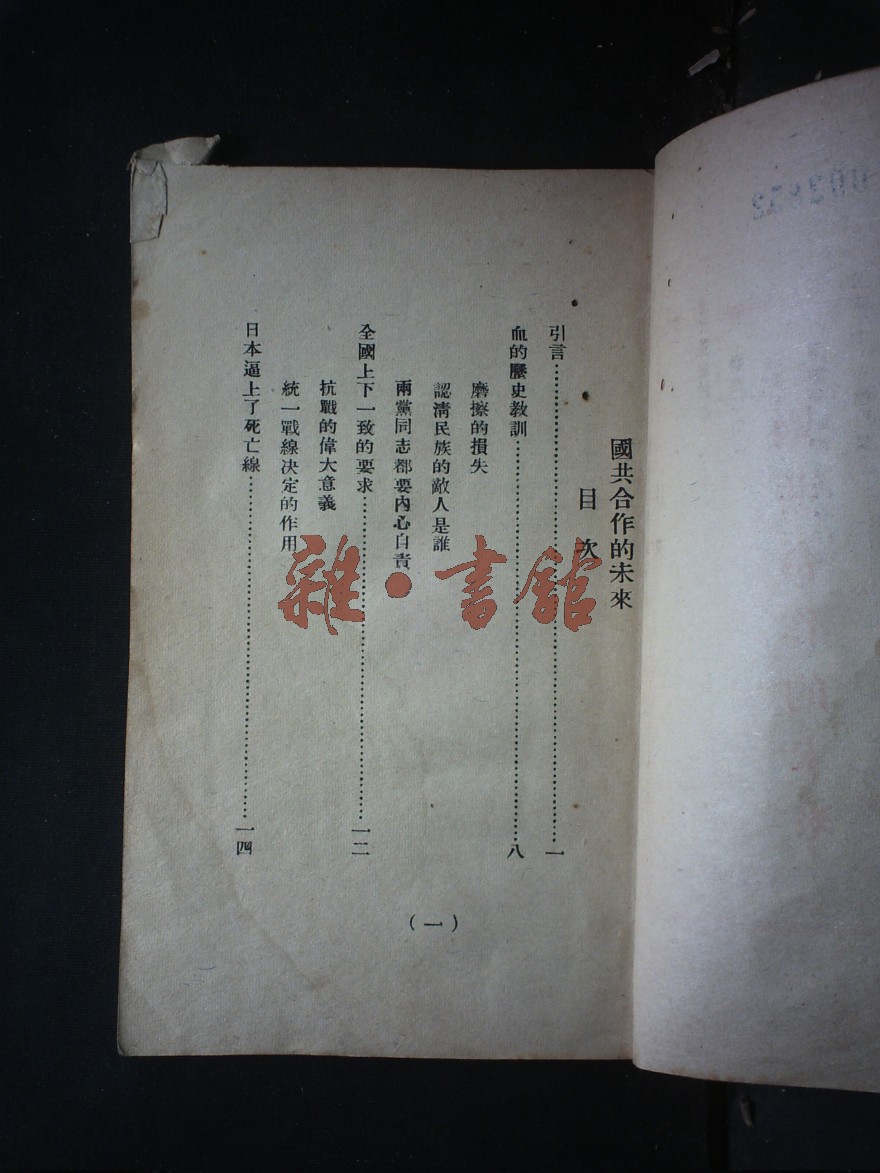 國共合作的未來
目次
引言……一
血的歷史教訓……八
磨擦的損失
認清民族的敵人是誰
兩黨同志都要內心自責
全國上下一致的要求……一二
抗戰的偉大意義
統一戰線決定的作用
日本逼上了死亡線……一四
(一)
雜·書館